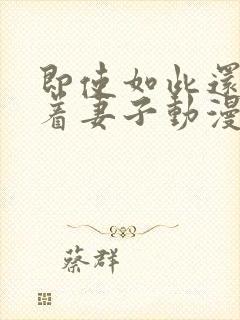 即使如此還
着妻子動漫
蔡群